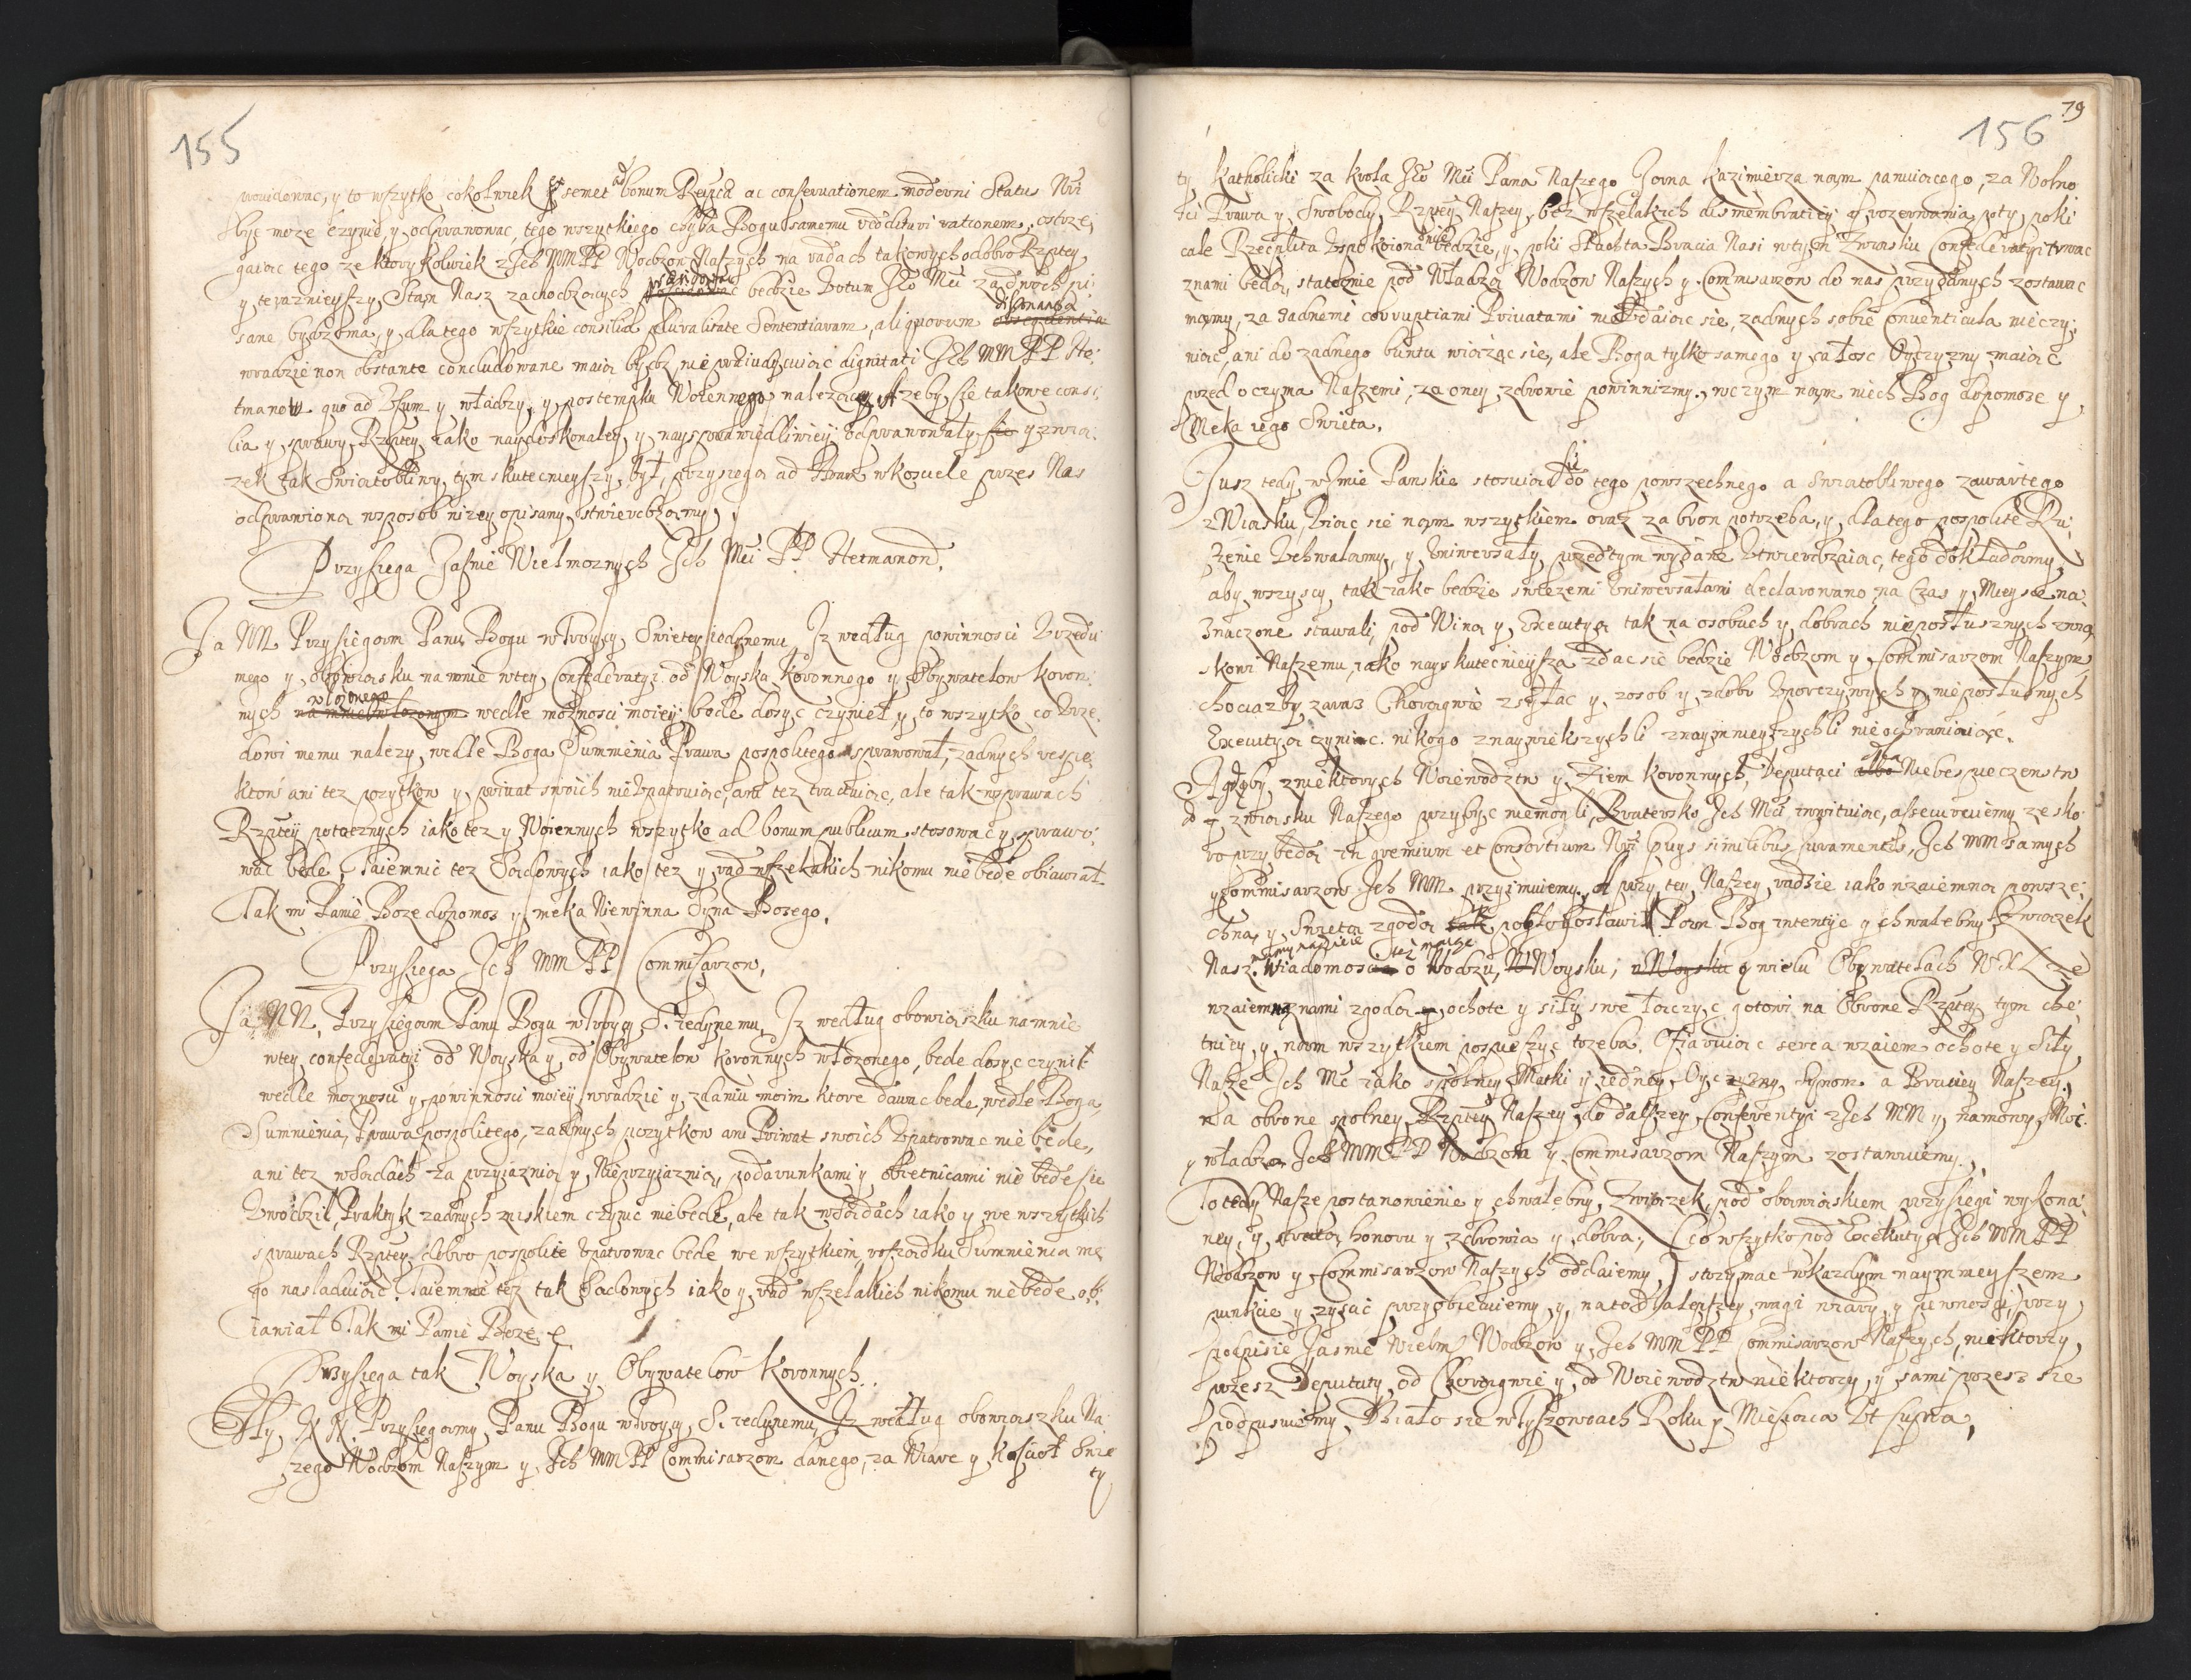 155
prowidowac, y to wszytko cokolwiek semet ad bonum Reip. ac conservationem moderni Status Nri
byc moze czynic y odprawowac, tego wszytkiego chyba Bogu samemu reddituri rationem, ostrze,
gaiąc tego ze ktory kolwiek z Ich MM PP Wodzow Naszych na radach takowych o dobro Rzptey
y teraznieyszy Stan Nasz zachodzących będzie Votum Jeo Mći za dwoch pi,
sane bydz ma, y dla tego wszytkie consilia pluralitate Sententiarum, aliquorum dissonantia
wradzie non obstante concludowane maią bydz, nie praeiudicuiąc dignitati Ich MM PP He,
tmanow quo ad Usum y władzy, y postempku Woiennego należącey. A zeby się takowe consi,
lia y sprawy Rzptey iako naydoskonaley y nayspráwiedliwiey odprawowały y zwią,
zek tak Swiątobliwy tym skutecznieyszy był, przysięgą ad Hoc w kosciele przez Nas
odprawioną wsposob nizey opisany stwierdzamy.
Przysięga Jasnie Wielmoznych Ich Mći PP Hetmanow.
Ja NN Przysięgam Panu Bogu w Troycy Swiętey iedynemu, Iz według powinnosci Urzędu
mego y obowiąsku na mnie wtey Confederatyi od Woyska Koronnego y Obywatelow Koron,
nych włozonego wedle moznosci moiey będe dosyc czynieł y to wszytko co Urzę,
dowi memu nalezy, wedle Boga Summienia Prawa pospolitego sprawował, zadnych respe,
ktow ani tez pozytkow y privat swoich nie upatruiąc, ani tez tractuiąc, ale tak w sprawach
Rzptey potocznych iako tez y Woiennych wszytko ad bonum publicum stosowac y sprawo,
wac będe, Taiemnic tez Sądowych iako tez y rad wszelakich nikomu nie będe obiawiał.
Tak mi Panie Boze dopomoz y męka Niewinna Syna Bozego.
Przysięga Ich MM PP Commisarzow.
Ja NN. Przysięgam Panu Bogu w Troycy S. iedynemu, Iz według obowiąszku na mnie
wtey confederatyi od Woyska y od Obywatelow Koronnych włozonego, będe dosyc czynił
wedle moznosci y powinnosci moiey, wradzie y zdaniu moim ktore dawac będe, wedle Boga,
Sumnienia, Prawa pospolitego, zadnych pozytkow ani Privat swoich upatrowac nie będe,
ani tez wsądach za przyiaznią y Nieprzyiaznią, podarunkami y obietnicami nie będe się
Uwodził, Praktyk zadnych zniskiem czynic nie będe, ale tak wsądach iako y we wszytkich
sprawach Rzptey dobro pospolite Upatrowac będe we wszytkiem, rosządku Summienia me
go nasladuiąc. Taiemnic tez tak Sądowych iako y rad wszelakich nikomu nie będe ob,
iawiał. Tak mi Panie Boze &
Przysięga tak Woyska y Obywatelow Koronnych.
My NN Przysięgamy Panu Bogu w Troycy S. iedynemu, Iz według obowiąszku Na,
szego Wodzom Naszym y Ich MM PP Commisarzom danego, za Wiarę y Kosciół Swię
ty
156
79
ty Katholicki za Krola Jeo Mći Pana Naszego Jana Kazimierza nam panuiącego, za Wolno
sci Prawa y Swobody Rzptey Naszey, bez wszelakich dismembratiey y rozerwania, poty, poki
cale Rzeczplta Uspokoiona nie będzie, y poki Słachta Bracia Nasi wtym Zwiąsku Confederatyi trwac
znami będą, statecznie pod Władzą Wodzow Naszych y Commisarzow do nas przydanych zostawac
mamy, za zadnemi corruptiami Privatami nie udaiąc się, zadnych sobie Conventicula nie czy,
niąc, ani do zadnego buntu wiążąc się, ale Boga tylko samego y całosc Oyczyzny maiąc
przed oczyma Naszemi, za oney zdrowie powinnizmy, w czym nam niech Bog dopomoze y
Męka iego Swieta.
Jusz tedy w Imie Panskie stosuiąc się do tego powszechnego a swiątobliwego zawartego
zWiąsku, Wziąc się nam wszytkiem oraz za bron potrzeba, y dla tego pospolite Ru,
szenie Uchwalamy, y Uniwersały przed tym wydane Utwierdzaiąc, tego dokładamy,
aby wszyscy, tak iako będzie swiezemi Uniwersałami declarowano na Czas y Mieysce na,
znaczone stawali, pod Winą y Executyą tak na osobach y dobrach nieposłusznych zwią
skowi Naszemu, iako nayskutecznieysza zdac się będzie Wodzom y Commisarzom Naszym,
chociazby zaraz Chorągwie zsyłac y zosob y zdobr Uporczywych y nieposłusznych
Executyą czyniąc. nikogo znaywiekszych li znaymnieyszych li nie ochraniaiąc.
A gdyby zniektorych Woiewodztw y Ziem koronnych, Deputaci dla Niebespieczenstw
do zwiąsku Naszego przybyc niemogli, Bratersko Ich Mći inwituiąc, assecuruiemy ze sko,
ro przybędą in gremium et Consortium Nri cuius similibus iuramentis, Ich MM samych
y Commisarzow Ich MM przyimuiemy, a przy tey Naszey radzie iako wzaiemna powsze,
chną y Swiętą zgodą pobłogosławił Pan Bog intentye y chwalebny Zwiazek
Nasz. mamy na zdanie Wiadomosc iuz maiąc o Wodzu, Woysku, y wielu Obywatelach W X L ze
wzaiemną znami zgodą ochotę y siły swe łączyc gotowi na Obronę Rzptey tym chę,
tnicy y nam wszytkiem pospieszyc trzeba. Ofiaruiąc serca wzaiem ochotę y Siły
Nasze Ich Mć iako społney Matki y iedney Oyczyzny synom a Braciey Naszey,
na obronę społney Rzptey Naszey do dalszey Conferentyi z Ich MM y namowy Moc
y władzą Ich MM PP Wodzom y Commisarzom Naszym zostawuiemy.
To tedy Nasze postanowienie y chwalebny Zwiazek pod obowiąskiem przysięgi wykona,
ney, y stratą honoru y zdrowia y dobra, (co wszytko pod Excekutyą Ich MM PP
Wodzow y Commisarzow Naszych oddaiemy,) strzymac wkazdym naymnieyszem
punkcie y zyscic przyobiecuiemy, y na to dla lepszey wagi wiary y pewnosci, przy
podpisie Jasnie Wielm Wodzow y Ich MM PP Commisarzow Naszych, niektorzy
przesz Deputaty od Chorągwie y od Woiewodztw niektorzy, y sami przesz się
podpisuiemy. Działo się w Tyszowcach Roku y Miesiąca Ut supra.